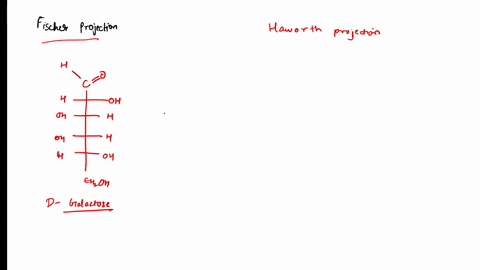 Fischer projection
Haworth projection
H
O
C
H OH
OH H
OH H
H OH
CH2OH
D- Galactose